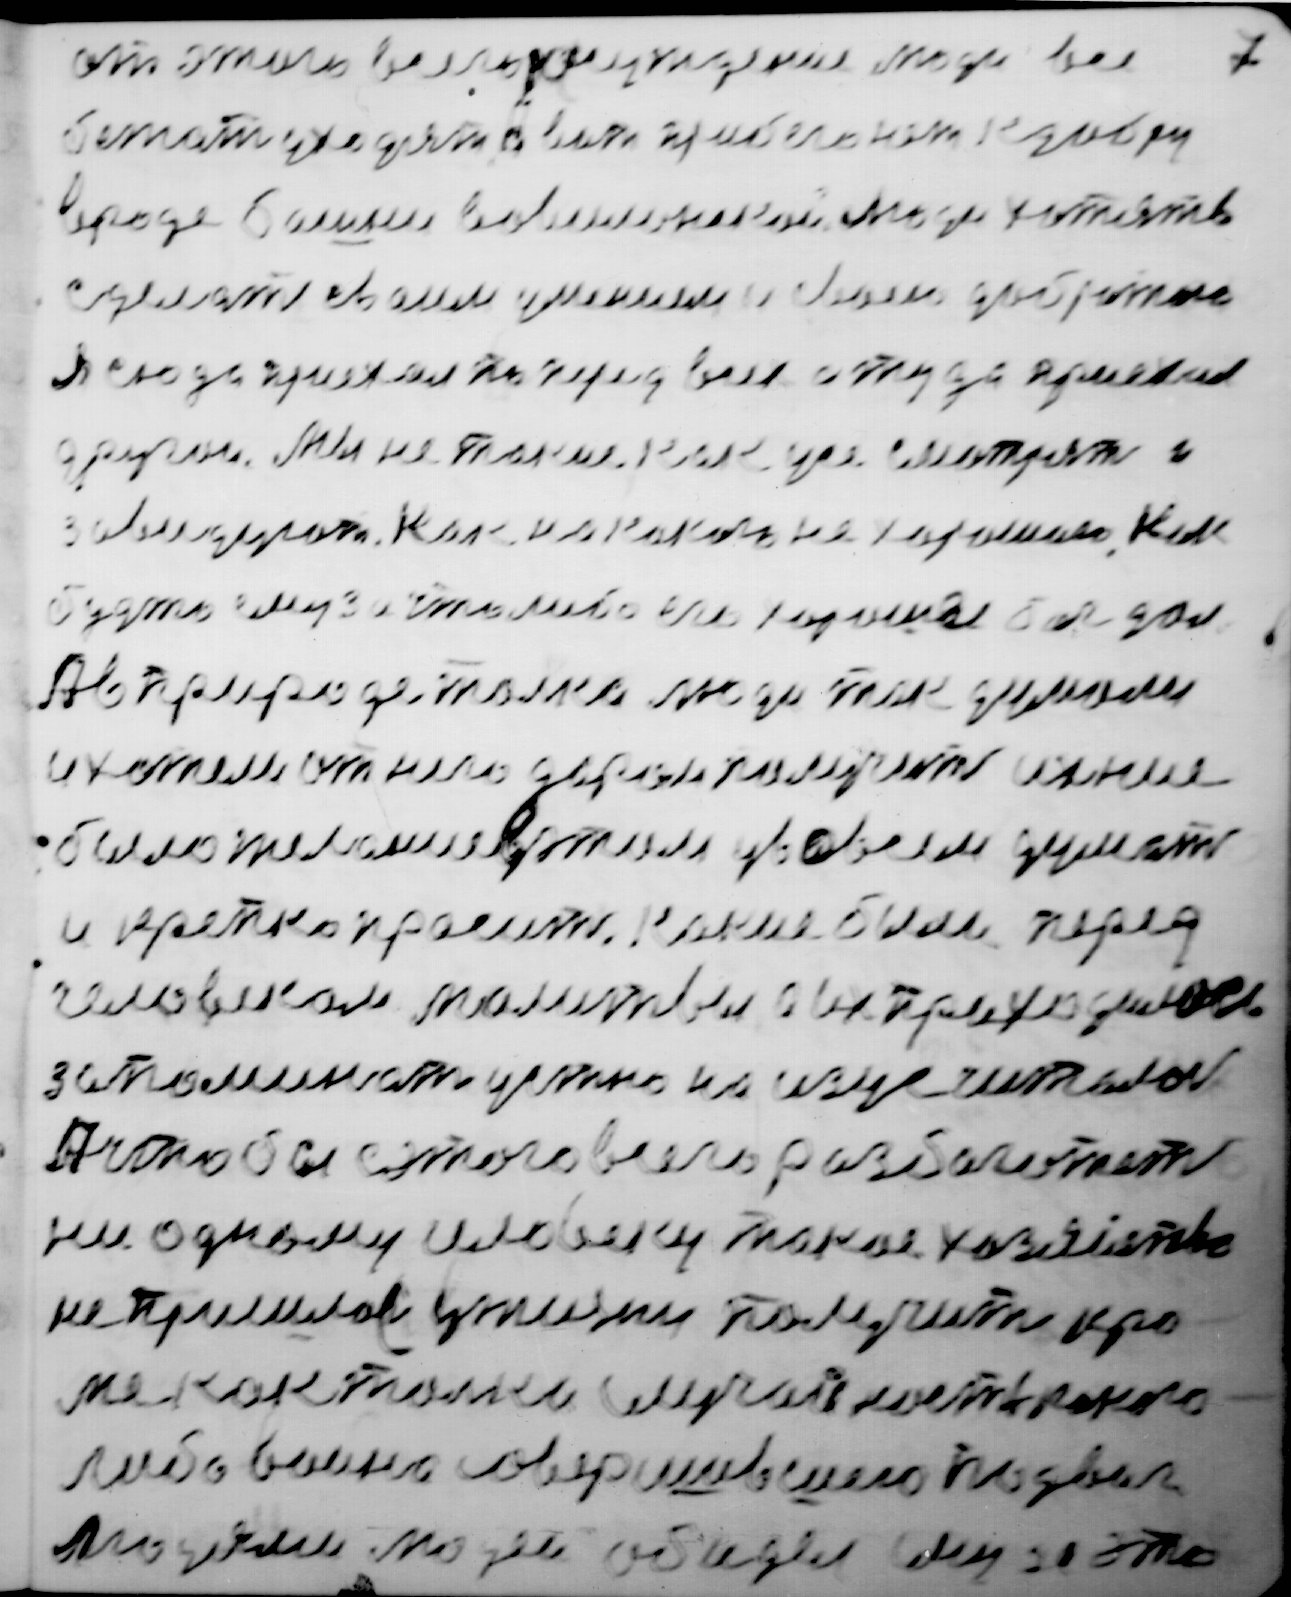 от этого всего рождение люди все 7
бежат уходят а вит прибегают к добру
вроде башни вавилонской. Люди хотять
сделать своим умением и своею добротою
Я сюда приехал по перед всех оттуда приехал
другом. Мы не такие. Как усе смотрят и
завидуют. Как на какого не хорошего, Как
будто ему за что либо его хорошае бог дал.
А в природе. толко люди так думали
и хотели от него даром получить ихнее
было желание этим усовсем думать
и крепко просить. Какие были перед
человеком молитвы а их приходилось
запоминать устно на изус читалось
А что бы с этого всего разбагатеть
ни одному человеку такое хозяйство
не пришлось у жизни получить кро
ме как толко случайность какого
либо воина совершившего подвиг
людями людей обиды ему за это